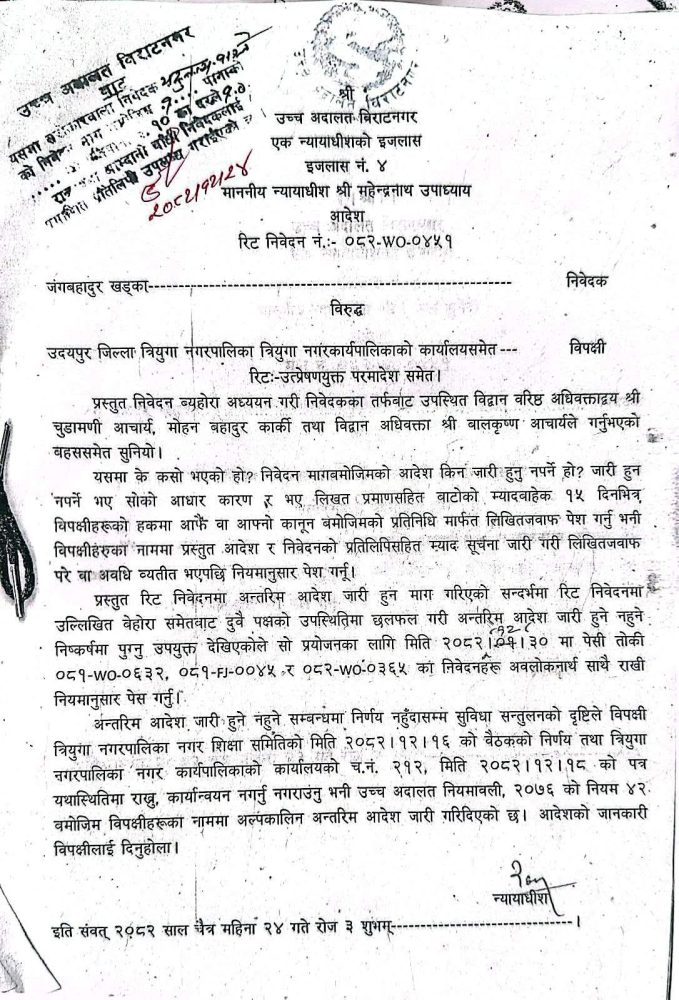 उच्च अदालत विराटनगर
बाट
यसमा सरोकारवाला निवेदक
को निवेदन माग बमोजिम पानाको
१० का दरले रु
प्रतिलिपि उपलब्ध गराईएको
२०८२/१२/२४
श्री
उच्च अदालत बिराटनगर
एक न्यायाधीशको इजलास
इजलास नं. ४
माननीय न्यायाधीश श्री महेन्द्रनाथ उपाध्याय
आदेश
रिट निवेदन नं.:- ०८२-WO-०४५१
जंगबहादुर खड्का------------------------------------------------------------ निवेदक
विरुद्ध
उदयपुर जिल्ला त्रियुगा नगरपालिका त्रियुगा नगरकार्यपालिकाको कार्यालयसमेत --- विपक्षी
रिटः-उत्प्रेषणयुक्त परमादेश समेत।
प्रस्तुत निवेदन व्यहोरा अध्ययन गरी निवेदकका तर्फबाट उपस्थित विद्वान वरिष्ठ अधिवक्ताद्वय श्री
चुडामणी आचार्य, मोहन बहादुर कार्की तथा विद्वान अधिवक्ता श्री बालकृष्ण आचार्यले गर्नुभएको
बहससमेत सुनियो।
यसमा के कसो भएको हो? निवेदन मागबमोजिमको आदेश किन जारी हुनु नपर्ने हो? जारी हुन
नपर्ने भए सोको आधार कारण र भए लिखत प्रमाणसहित वाटोको म्यादवाहेक १५ दिनभित्र
विपक्षीहरूको हकमा आफै वा आफ्नो कानून बमोजिमको प्रतिनिधि मार्फत लिखितजवाफ पेश गर्नु भनी
विपक्षीहरुका नाममा प्रस्तुत आदेश र निवेदनको प्रतिलिपिसहित म्याद सूचना जारी गरी लिखितजवाफ
परे वा अवधि व्यतीत भएपछि नियमानुसार पेश गर्नू।
प्रस्तुत रिट निवेदनमा अन्तरिम आदेश जारी हुन माग गरिएको सन्दर्भमा रिट निवेदनमा
उल्लिखित वेहोरा समेतबाट दुवै पक्षको उपस्थितिमा छलफल गरी अन्तरिम आदेश जारी हुने नहुने
निष्कर्षमा पुग्नु उपयुक्त देखिएकोले सो प्रयोजनका लागि मिति २०८२।१२।३० मा पेसी तोकी
०८१-WO-०६३२, ०८१-FJ-००४५ र ०८२-WO-०३६५ का निवेदनहरू अवलोकनार्थ साथै राखी
नियमानुसार पेस गर्नु।
अन्तरिम आदेश जारी हुने नहुने सम्बन्धमा निर्णय नहुँदासम्म सुविधा सन्तुलनको दृष्टिले विपक्षी
त्रियुगा नगरपालिका नगर शिक्षा समितिको मिति २०८२।१२।१६ को बैठकको निर्णय तथा त्रियुगा
नगरपालिका नगर कार्यपालिकाको कार्यालयको च.नं. २१२, मिति २०८२।१२।१८ को पत्र
यथास्थितिमा राख्नु, कार्यान्वयन नगर्नु नगराउंनु भनी उच्च अदालत नियमावली, २०७६ को नियम ४२
वमोजिम विपक्षीहरूका नाममा अल्पकालिन अन्तरिम आदेश जारी गरिदिएको छ। आदेशको जानकारी
विपक्षीलाई दिनुहोला।
न्यायाधीश
इति संवत् २०८२ साल चैत्र महिना २४ गते रोज ३ शुभम्------------------------------।